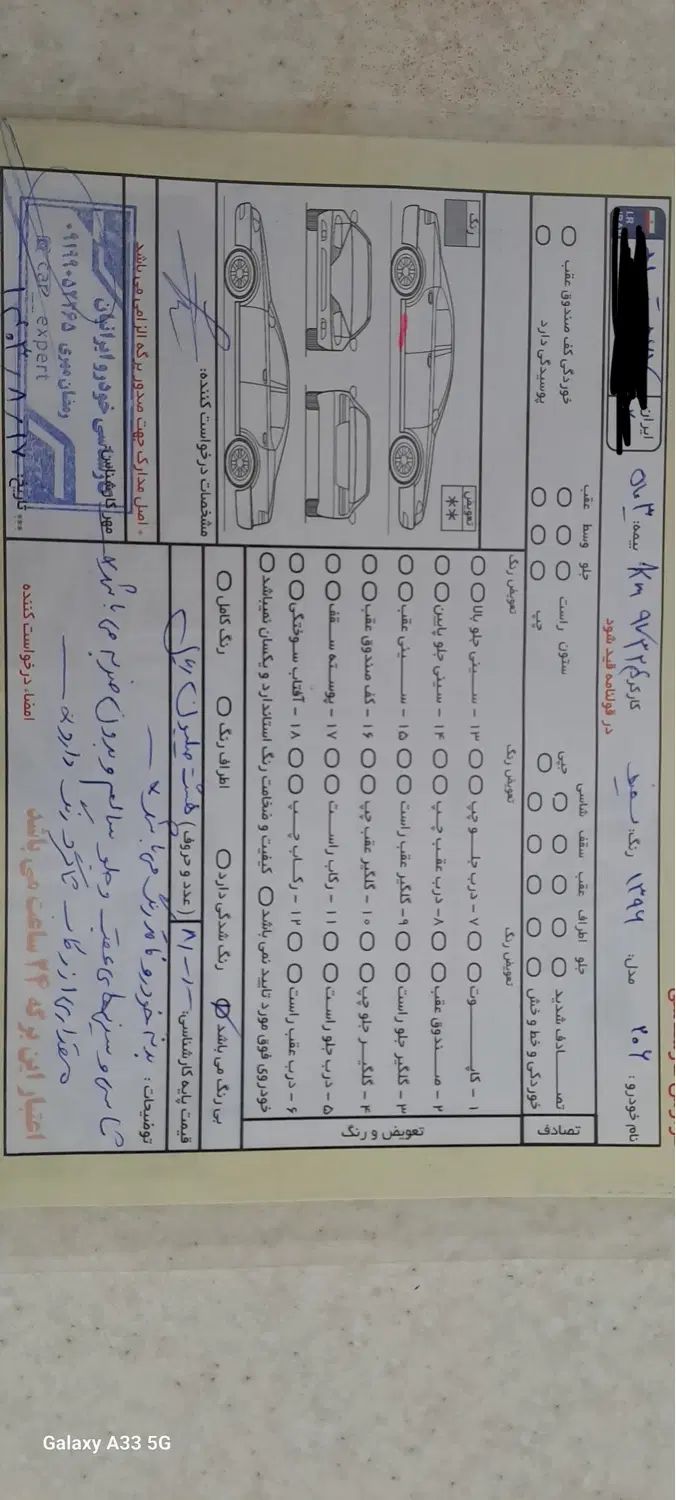 نام خودرو: ۲۰۶ مدل: ۱۳۹۹ رنگ: سفید کارکرد Km ۹۷/۲۲ بیمه: ۳ ماه
ایران
در قولنامه قید شود
تصادف
جلو اطراف عقب سقف شاسی
تصــــادف شدید
خوردگی و خط و خش
چپی
جلو وسط عقب
ستون راست
چپ
خوردگی کف صندوق عقب
پوسیدگی دارد
تعویض و رنگ
تعویض رنگ تعویض رنگ تعویض رنگ
۱ - کاپــــوت ۷ - درب جلــو چپ ۱۳ - ســـینی جلو بالا
۲ - صـــندوق عقب ۸ - درب عقــب چــپ ۱۴ - سینی جلو پایین
۳ - گلگیر جلو راست ۹ - گلگیر عقب راست ۱۵ - ســـینی عقب
۴ - گلگیــر جلو چپ ۱۰ - گلگیر عقب چپ ۱۶ - کف صندوق عقب
۵ - درب جلو راست ۱۱ - رکاب راســت ۱۷ - پوســته ســقف
۶ - درب عقب راست ۱۲ - رکــاب چــپ ۱۸ - آفتاب سـوختگی
خودروی فوق مورد تایید نمی باشد کیفیت و ضخامت رنگ استاندارد و یکسان نمیباشد
رنگ
تعویض
**
بی رنگ می باشد رنگ شدگی دارد اطراف رنگ رنگ کامل
مشخصات درخواست کننده:
قیمت پایه کارشناسی: (عدد و حروف)
توضیحات: بدنه خودرو فاقد رنگ می باشد
شاسی و سینی های عقب و جلو سالم و بدون ضربه می باشد
مقداری از رکاب شاگرد رنگ دارد
* اصل مدارک جهت صدور برگه الزامی می باشد
مهر کارشناس:
کارشناسی خودرو ایرانیان
رمضان مهری
car_expert
تاریخ: ۱۴۰۳/۸/۱۷
امضاء درخواست کننده
اعتبار این برگه ۲۴ ساعت می باشد
Galaxy A33 5G